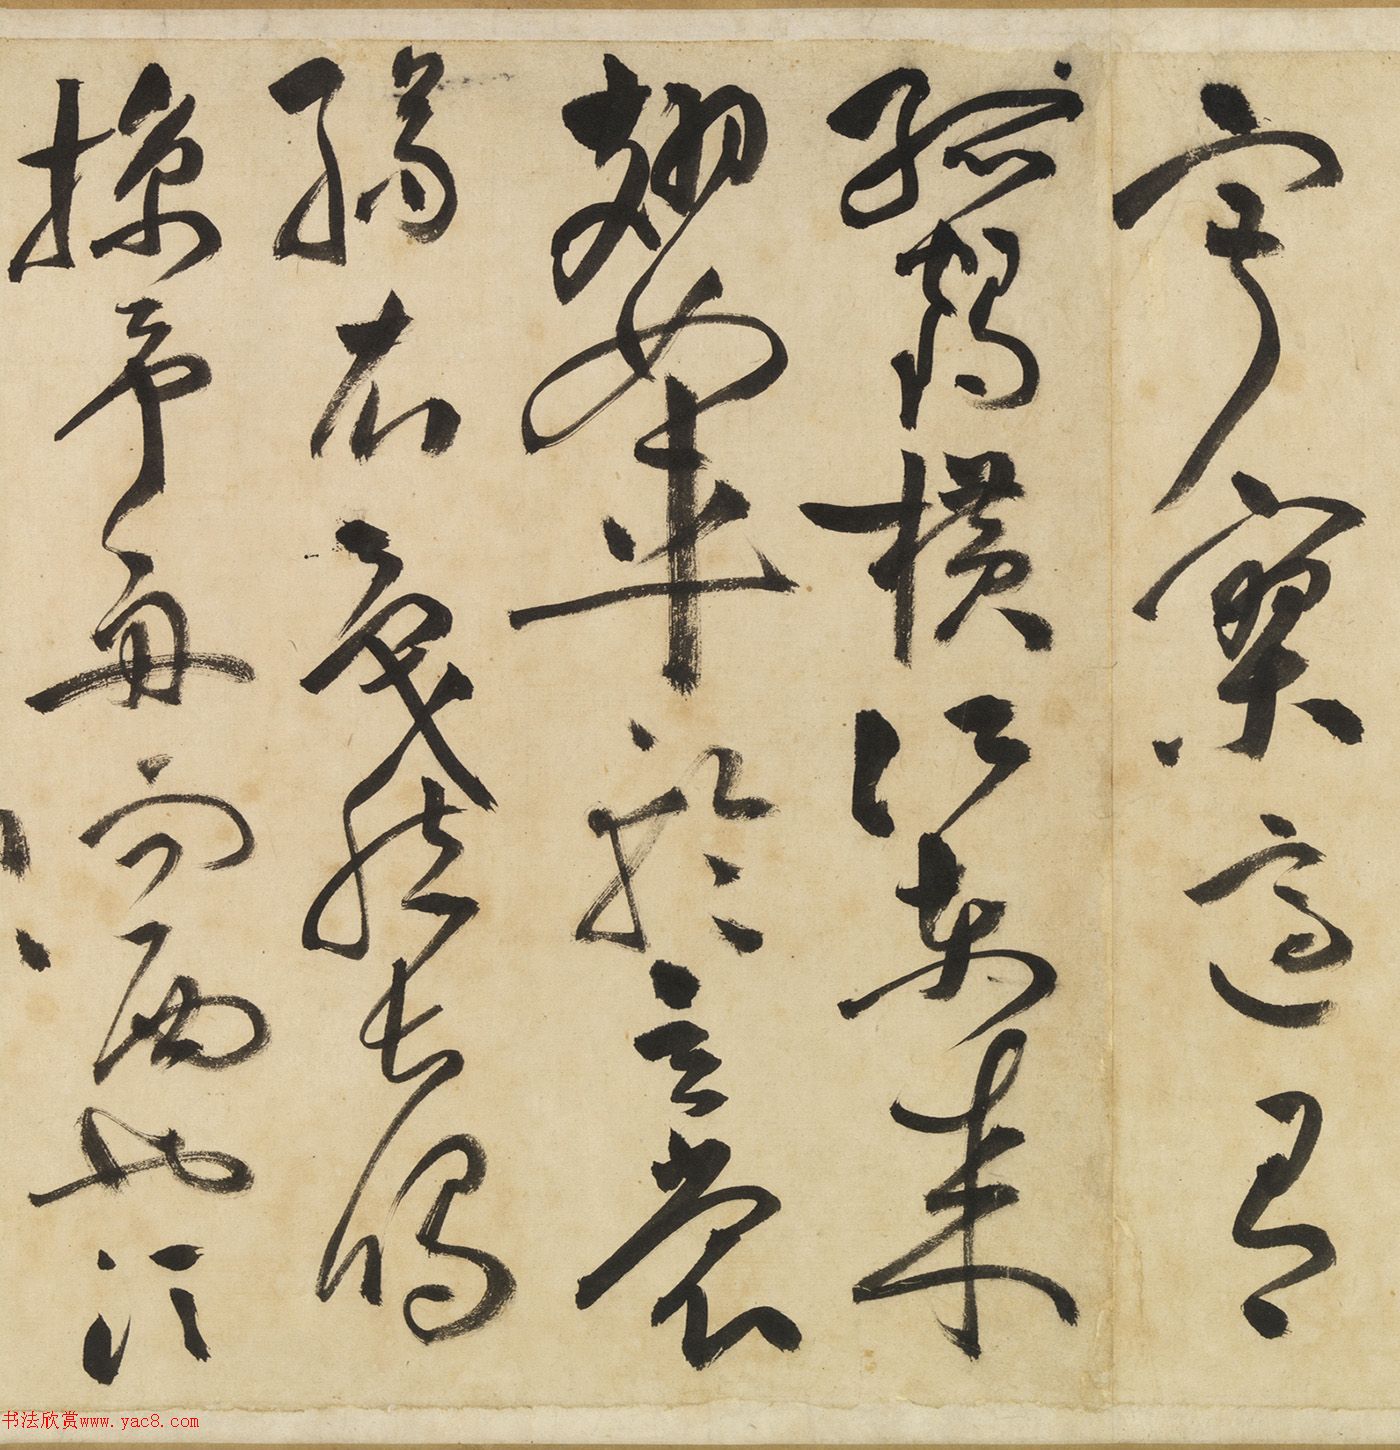 寂寥適有
孤鶴橫江東來
翅如車輪玄裳
縞衣戛然長鳴
掠予舟而西也須
书法欣赏www.yac8.com